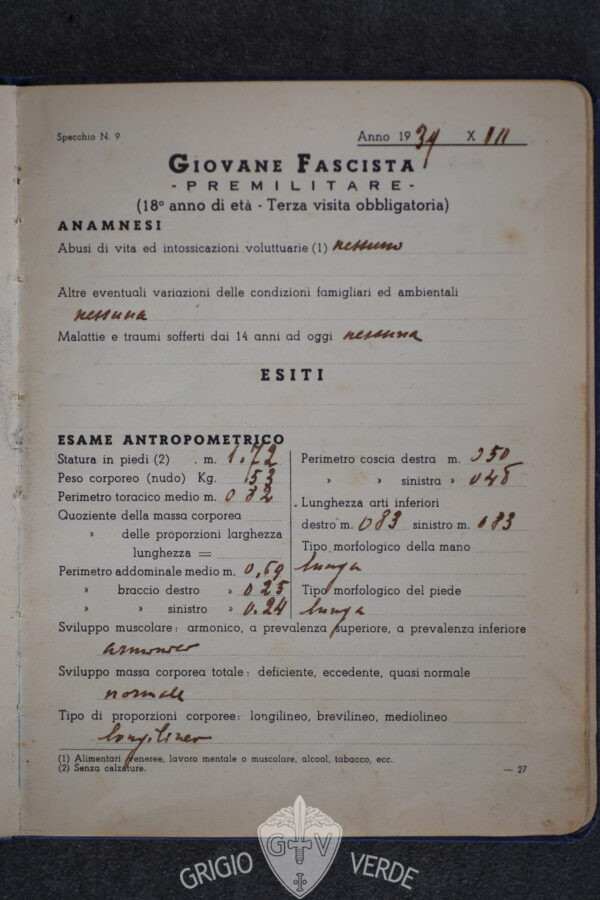 Specchio N. 9
Anno 1939 X III
GIOVANE FASCISTA
- PREMILITARE -
(18º anno di età - Terza visita obbligatoria)
ANAMNESI
Abusi di vita ed intossicazioni voluttuarie (1) nessuno
Altre eventuali variazioni delle condizioni famigliari ed ambientali
nessuna
Malattie e traumi sofferti dai 14 anni ad oggi nessuna
ESITI
ESAME ANTROPOMETRICO
Statura in piedi (2) . m. 1.72
Peso corporeo (nudo) Kg. 53
Perimetro toracico medio m. 0 82
Quoziente della massa corporea
» delle proporzioni larghezza
lunghezza =
Perimetro addominale medio m. 0,69
» braccio destro » 0.25
» » sinistro » 0.24
Perimetro coscia destra m. 050
» » sinistra » 048
Lunghezza arti inferiori
destro m. 083 sinistro m. 083
Tipo morfologico della mano
lunga
Tipo morfologico del piede
lunga
Sviluppo muscolare: armonico, a prevalenza superiore, a prevalenza inferiore
armonico
Sviluppo massa corporea totale: deficiente, eccedente, quasi normale
normale
Tipo di proporzioni corporee: longilineo, brevilineo, mediolineo
longilineo
(1) Alimentari veneree, lavoro mentale o muscolare, alcool, tabacco, ecc.
(2) Senza calzature.
— 27
GRIGIO G V VERDE